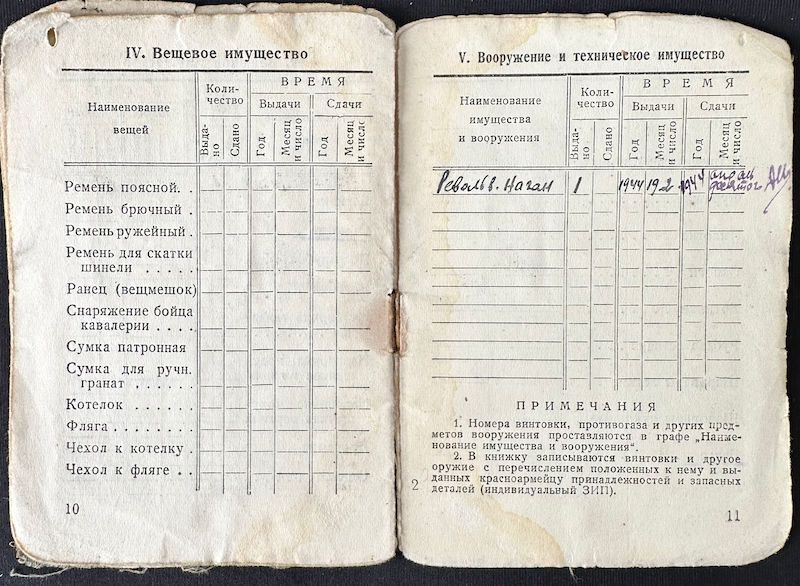 IV. Вещевое имущество
Наименование
вещей
Коли-
чество
ВРЕМЯ
Выдачи
Сдачи
Выда-
но
Сдано
Год
Месяц
и число
Год
Месяц
и число
Ремень поясной. .
Ремень брючный .
Ремень ружейный .
Ремень для скатки
шинели . . . . .
Ранец (вещмешок)
Снаряжение бойца
кавалерии . . . .
Сумка патронная
Сумка для ручн.
гранат . . . . . .
Котелок . . . . . .
Фляга . . . . . . .
Чехол к котелку .
Чехол к фляге . .
10
V. Вооружение и техническое имущество
Наименование
имущества
и вооружения
Количество
ВРЕМЯ
Выдачи
Сдачи
Выда-
но
Сдано
Год
Месяц
и число
Год
Месяц
и число
Револьв. Наган 1 1944 19.2 1944
ПРИМЕЧАНИЯ
1. Номера винтовки, противогаза и других пред-
метов вооружения проставляются в графе „Наиме-
нование имущества и вооружения".
2. В книжку записываются винтовки и другое
оружие с перечислением положенных к нему и вы-
данных красноармейцу принадлежностей и запасных
деталей (индивидуальный ЗИП).
2
11